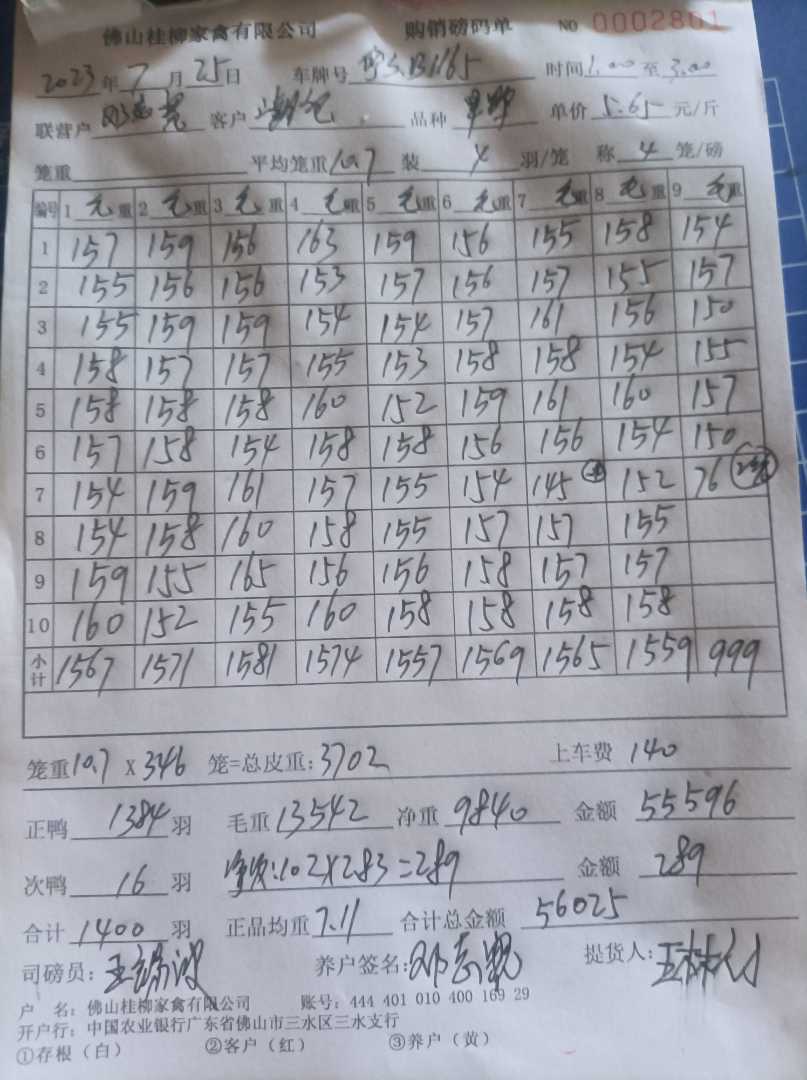 佛山桂柳家禽有限公司 购销磅码单 NO 0002861
2023年7月25日 车牌号 时间1.00至3.00
联营户 客户 品种 单价5.65元/斤
笼重 平均笼重10.7 装4羽/笼 称4笼/磅
编号 1毛重 2毛重 3毛重 4毛重 5毛重 6毛重 7毛重 8毛重 9毛重
1 157 159 156 163 159 156 155 158 154
2 155 156 156 153 157 156 157 155 157
3 155 159 159 154 154 157 161 156 150
4 158 157 157 155 153 158 158 154 155
5 158 158 158 160 152 159 161 160 157
6 157 158 154 158 158 156 156 154 150
7 154 159 161 157 155 154 145 152 76 2笼
8 154 158 160 158 155 157 157 155
9 159 155 165 156 156 158 157 157
10 160 152 155 160 158 158 158 158
小计 1567 1571 1581 1574 1557 1569 1565 1559 999
笼重10.7 X 346 笼=总皮重:3702 上车费 140
正鸭1384羽 毛重13542 净重9840 金额55596
次鸭16羽 :102X2.83=289 金额289
合计1400羽 正品均重7.11 合计总金额56025
司磅员: 养户签名:邓志 提货人:
户 名: 佛山桂柳家禽有限公司 账号: 444 401 010 400 169 29
开户行: 中国农业银行广东省佛山市三水区三水支行
①存根(白) ②客户(红) ③养户(黄)